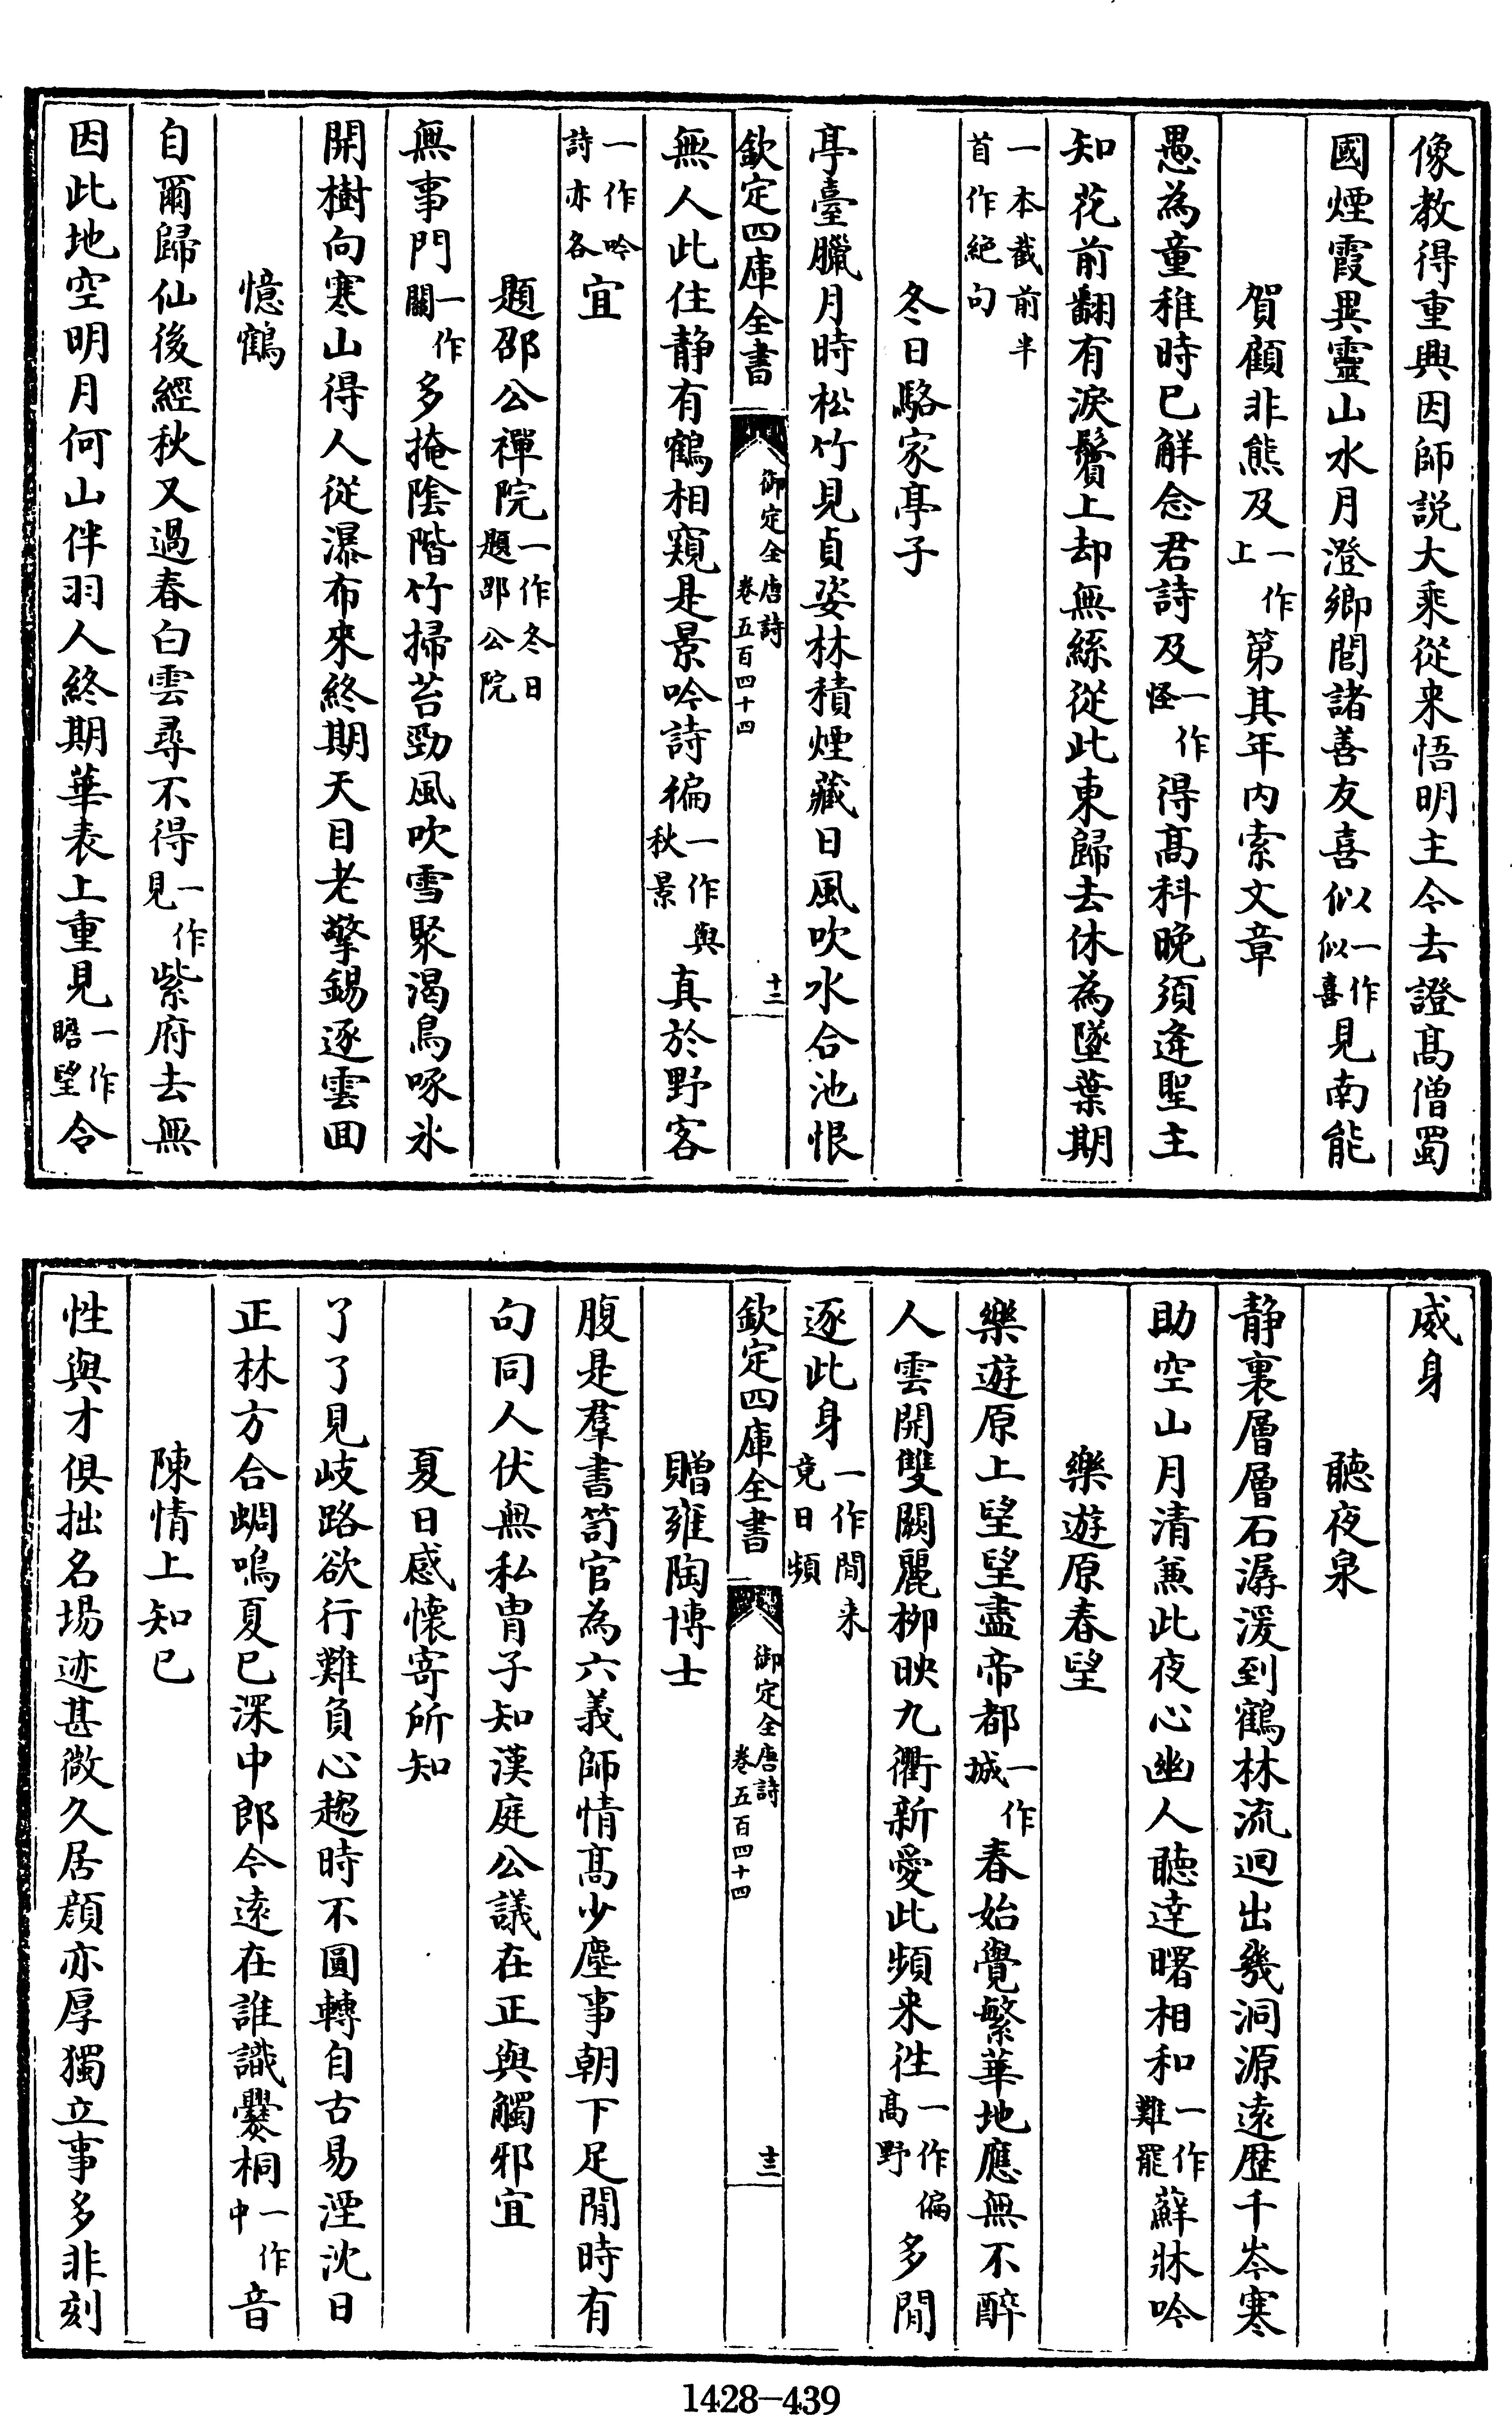 像教得重興因師説大乘從来悟明主今去證髙僧蜀
國煙霞異靈山水月澄鄉閭諸善友喜似一作似喜見南能
賀顧非熊及一作上第其年内索文章
愚為童稚時已解念君詩及一作怪得髙科晚須逄聖主
知花前翻有淚鬢上却無絲從此東歸去休為墜葉期
一本截前半首作絶句
冬日駱家亭子
亭臺臘月時松竹見貞姿林積煙藏日風吹水合池恨
欽定四庫全書 御定全唐詩 卷五百四十四 十二
無人此住静有鶴相窺是景吟詩徧一作與秋景真於野客
一作吟詩亦各宜
題邵公禪院一作冬日題邵公院
無事門一作關多掩陰階竹掃苔勁風吹雪聚渴鳥啄氷
開樹向寒山得人從瀑布來終期天目老擎錫逐雲回
憶鶴
自爾歸仙後經秋又過春白雲尋不得一作見紫府去無
因此地空明月何山伴羽人終期華表上重見一作瞻望令
威身
聽夜泉
静裏層層石潺湲到鶴林流迴出幾洞源逺歴千岑寒
助空山月清兼此夜心幽人聽達曙相和一作難罷蘚牀吟
樂遊原春望
樂遊原上望望盡帝都一作城春始覺繁華地應無不醉
人雲開雙闕麗柳映九衢新愛此頻来徃一作偏髙野多閒
逐此身一作閒来竟日頻
欽定四庫全書 御定全唐詩 卷五百四十四 十三
贈雍陶博士
腹是羣書笥官為六義師情髙少塵事朝下足閒時有
句同人伏無私胄子知漢庭公議在正與觸邪宜
夏日感懷寄所知
了了見岐路欲行難負心趨時不圓轉自古易湮沈日
正林方合蜩鳴夏已深中郎今逺在誰識爨桐一作中音
陳情上知已
性與才俱拙名場迹甚微久居顔亦厚獨立事多非刻
1428-439